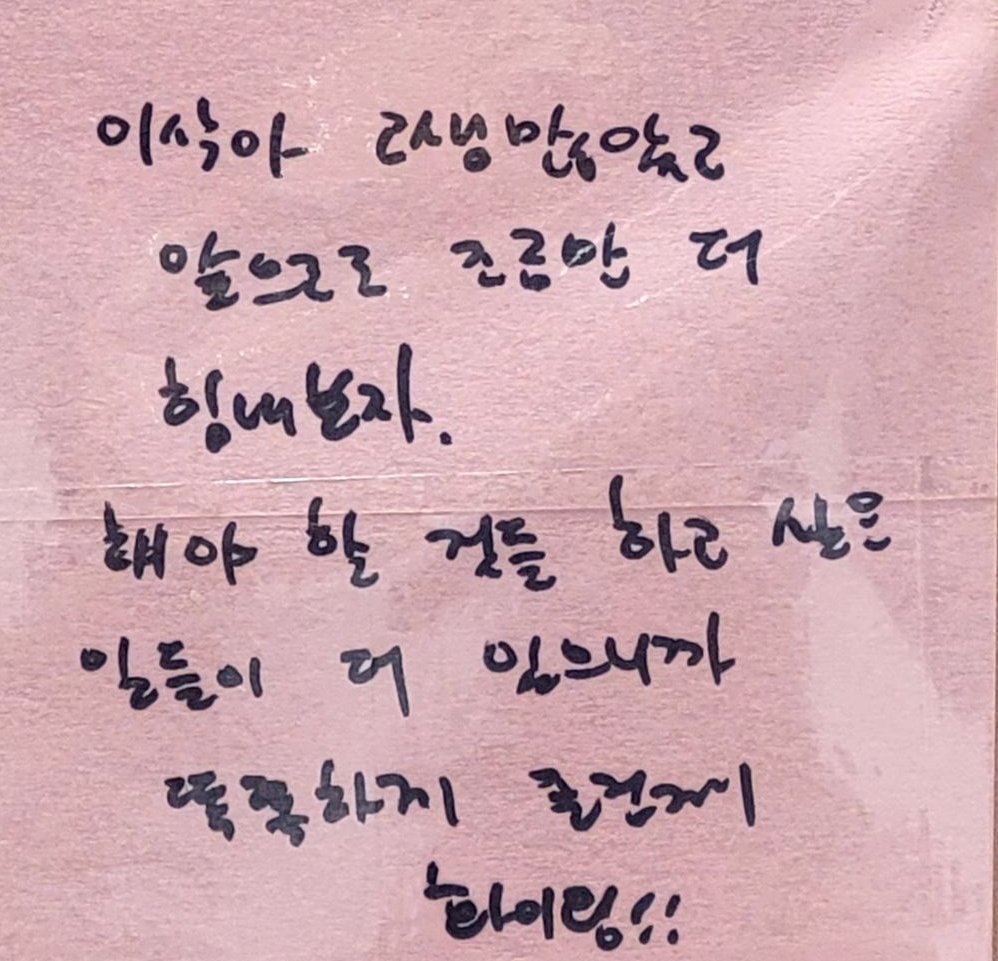 이삭아 고생 많았고
앞으로 조금만 더
힘내보자.
해야 할 것들 하고 싶은
일들이 더 있으니까
똑똑하게 즐겁게
화이링!!